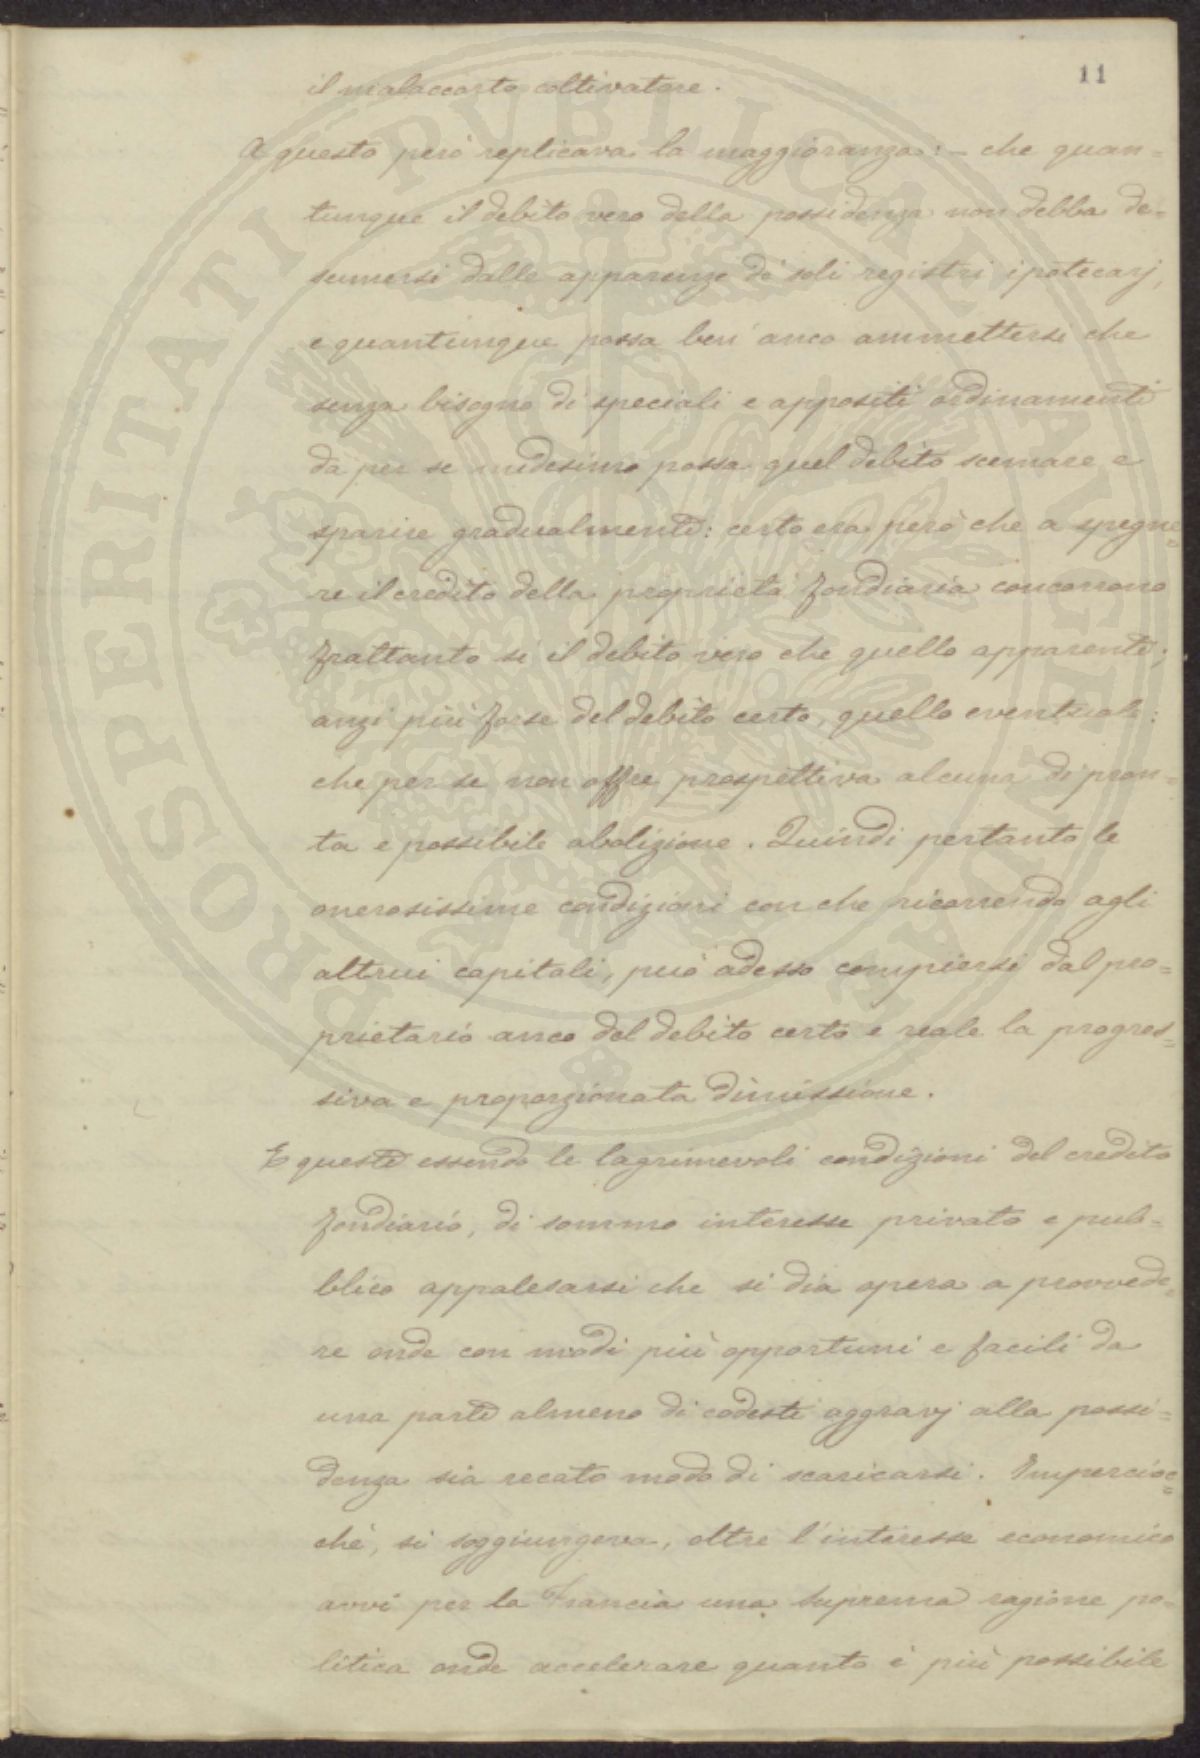 11
il malaccorto coltivatore.
A questo però replicava la maggioranza: – che quan=
tunque il debito vero della possidenza non debba de=
sumersi dalle apparenze de' soli registri ipotecarj,
e quantunque possa ben' anco ammettersi che
senza bisogno di speciali e appositi ordinamenti
da per se medesimo possa quel debito scemare e
sparire gradualmente: certo era però che a spegne=
re il credito della proprietà fondiaria concorrono
frattanto sì il debito vero che quello apparente;
anzi più forse del debito certo, quello eventuale:
che per se non offre prospettiva alcuna di pron=
ta e possibile abolizione. Quindi pertanto le
onerosissime condizioni con che ricorrendo agli
altrui capitali, può adesso compiersi dal pro=
prietario anco del debito certo e reale la progres=
siva e proporzionata dimissione.
E queste essendo le lagrimevoli condizioni del credito
fondiario, di sommo interesse privato e pub=
blico appalesarsi che si dia opera a provvede=
re onde con modi più opportuni e facili da
una parte almeno di codesti aggravj alla possi=
denza sia recato modo di scaricarsi. Impercioc=
chè, si soggiungeva, oltre l'interesse economico
avvi per la Francia una suprema ragione po=
litica onde accelerare quanto è più possibile
PROSPERITATI PUBLICAE AUGENDAE